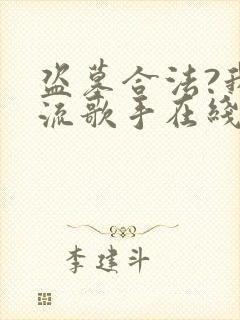 盗墓合法?我
流歌手在线
李建斗